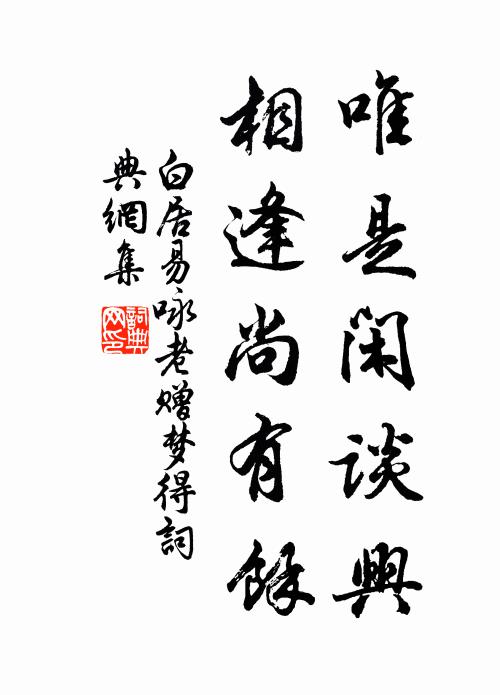 唯是閑談興
相逢尚有餘
白居易咏老赠梦得詞
典網集
詞典
网印